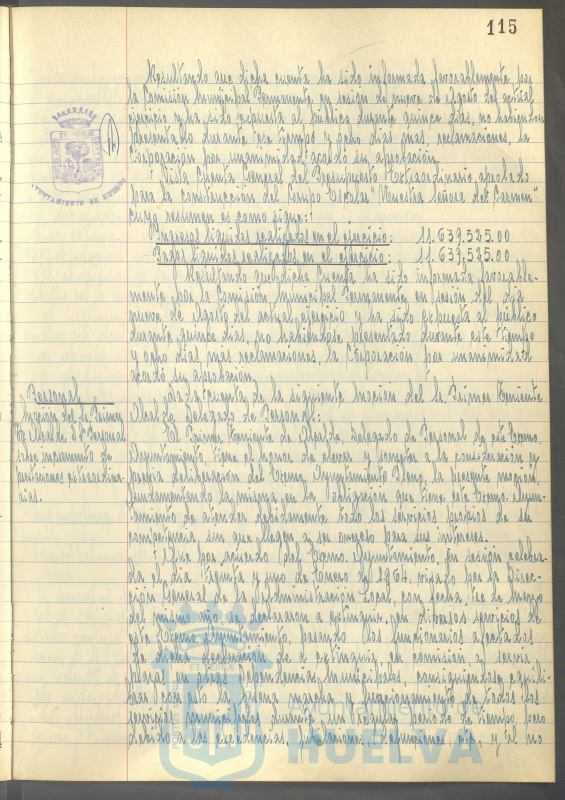 115
Resultando que dicha cuenta ha sido informada favorablemente por
la Comisión Municipal Permanente en sesión de nueve de Agosto del actual
ejercicio y ha sido expuesta al público durante quince días, no habiendose
presentado durante ese tiempo y ocho días mas, reclamaciones, la
Corporación por unanimidad acordó su aprobación.
Vista Cuenta General del Presupuesto Extraordinario aprobado
para la construcción del Grupo Escolar "Nuestra Señora del Carmen"
cuyo resumen es como sigue:
Ingresos liquidos realizados en el ejercicio: 11.639.525.00
Pagos liquidos realizados en el ejercicio: 11.639.525.00
Resultando que dicha Cuenta ha sido informada favorable-
mente por la Comisión Municipal Permanente en sesión del día
nueve de Agosto del actual ejercicio y ha sido expuesta al público
durante quince días, no habiendose presentado durante este tiempo
y ocho días mas reclamaciones, la Corporación por unanimidad
acordó su aprobación.
Personal
Moción del Sr. Primer
Tte. Alcalde, D. Personal
sobre incremento de
extraordina-
rias.
Dada cuenta de la siguiente Moción del Sr. Primer Teniente
Alcalde Delegado de Personal:
El Primer Teniente de Alcalde, Delegado de Personal de este Excmo.
Ayuntamiento, tiene el honor de elevar y someter a la consideración y
previa deliberación del Excmo. Ayuntamiento Pleno la presente moción,
fundamentando la misma en la obligación que tiene este Excmo. Ayun-
tamiento de atender debidamente todo los servicios propios de su
competencia, sin que llegen a ser oneroso para sus intereses.
Que por acuerdo del Excmo. Ayuntamiento, en sesión celebra-
da el día treinta y uno de Enero de 1964, visado por la Direc-
ción General de la Administración Local, con fecha tres de Marzo
del mismo año se declararon a extinguir, en diversos servicios de
este Excmo. Ayuntamiento, pasando los funcionarios afectados
de esta declaración de a extinguir, en comisión y servir
plazas en otras dependencias Municipales, consiguiendo equili-
brar con ello la buena marcha y funcionamiento de todos los
servicios municipales durante un regular periodo de tiempo, pero
debido a las excedencias, jubilaciones, defunciones, etc. y al no
AYUNTAMIENTO DE HUELVA
Ayuntamiento de
HUELVA